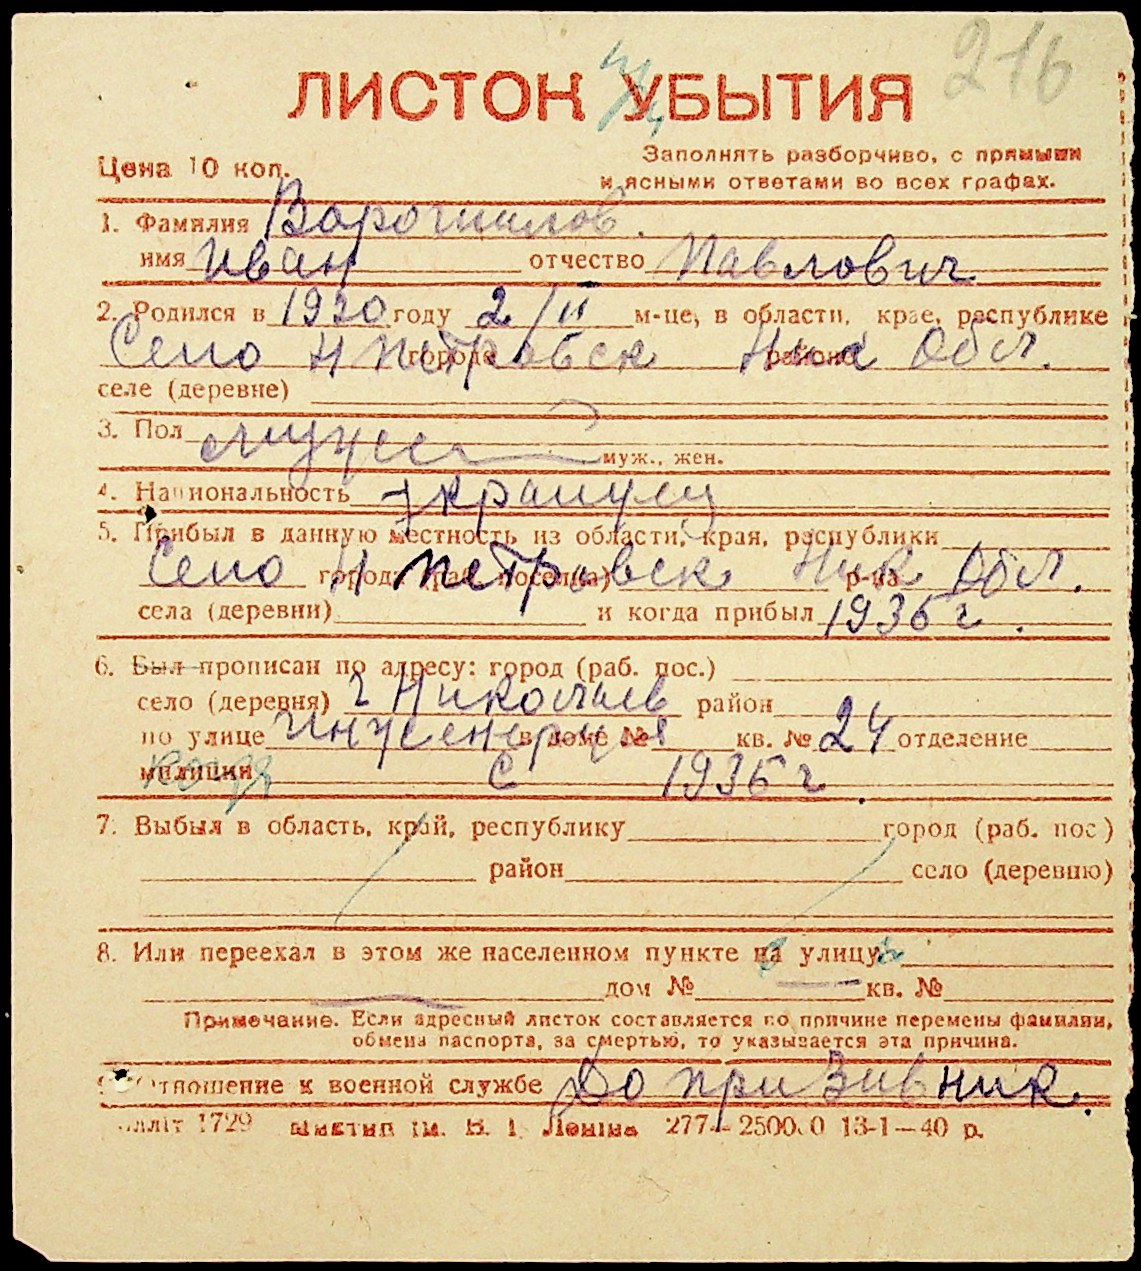 216
ЛИСТОК УБЫТИЯ
Цена 10 коп.
Заполнять разборчиво, с прямыми
и ясными ответами во всех графах.
1. Фамилия Ворошилов.
имя Иван отчество Павлович
2. Родился в 1920 году 2/II м-це, в области, крае, республике
Село Н Петровск города Ник района Обл.
селе (деревне)
3. Пол мужской муж., жен.
4. Национальность украинец
5. Прибыл в данную местность из области, края, республики
Село Н Петровск города (раб. поселка) Ник р-на Обл.
села (деревни) и когда прибыл 1936 г.
6. Был прописан по адресу: город (раб. пос.)
село (деревня) г Николаев район
по улице Инженерная в доме № кв. № 24 отделение
милиции когда с 1936 г.
7. Выбыл в область, край, республику город (раб. пос)
район село (деревню)
8. Или переехал в этом же населенном пункте на улицу
дом № кв. №
Примечание. Если адресный листок составляется по причине перемены фамилии,
обмена паспорта, за смертью, то указывается эта причина.
9. Отношение к военной службе Допризивник.
1729 ім. В. І. Леніна 277—250000 13-1—40 р.